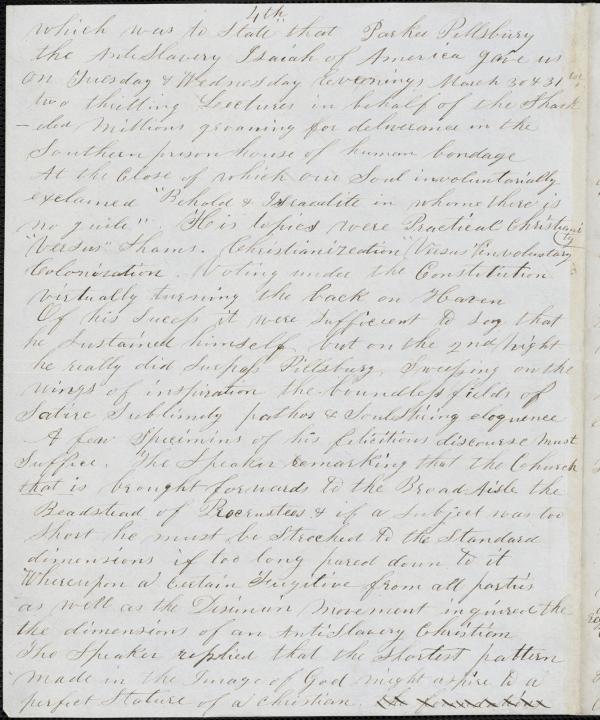 4th
which was to State that Parker Pillsbury
the AntiSlavery Isaiah of America gave us
on Tuesday & Wednesday Evenings March 30 & 31
two thrilling Lectures in behalf of the Shack
-eled Millions groaning for deliverance in the
Southern prison house of human bondage
At the Close of which our Soul involuntarily
exclaimed "Behold a Israelite in whome there is
no guile" His topics were Practical Christianity
"Versus" Shams. Christianization "Versus" involuntary
Colonization. Voting under the Constitution
virtually turning the back on Heaven
Of his Success it were Sufficient to say that
he Sustained himself, but on the 2nd Night
he really did Surpass Pillsbury, Sweeping on the
wings of inspiration the boundless fields of
Satire Sublimity pathos & Soul Stiring eloquence
A few Specimins of his felicitious discourse must
Suffice. The Speaker remarking that the Church
that is brought forwards to the Broad Aisle the
Beadstead of Procrustees & if a Subject was too
Short he must be Streched to the Standard
dimensions if too long pared down to it
Whereupon a Certain Fugitive from all parties
as well as the Disunion Movement inquired the
the dimensions of an AntiSlavery Christian
The Speaker replied that the Shortest pattern
made in the Image of God might aspire to a
perfect Stature of a Christian.